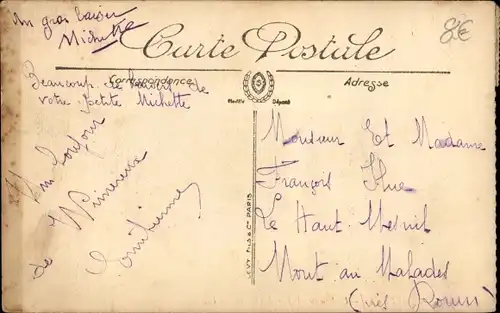 un gros baiser
Michette
8€
Carte Postale
Correspondance
Adresse
Modèle Déposé
Beaucoup de baisers de
votre petite Michette
Un bonjour
de Wimereux
LEVY FILS & Cie PARIS
Monsieur Et Madame
François Hue
Le Haut-Mesnil
Mont au Malades
(près Rouen)